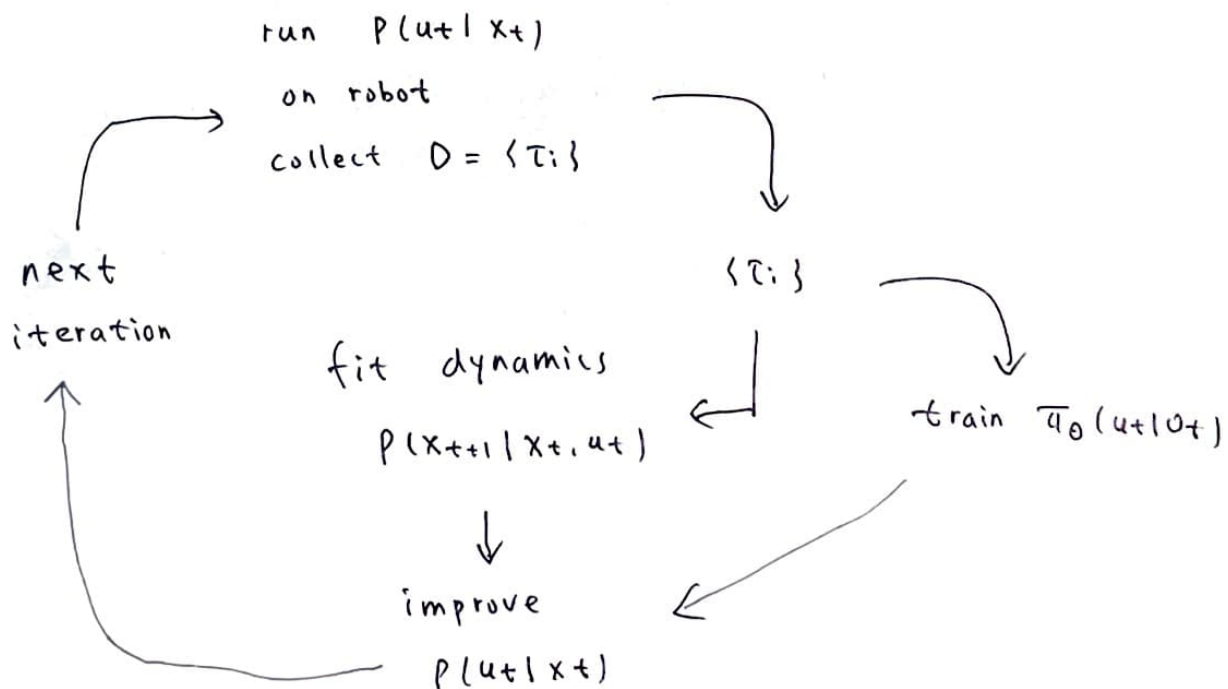 run p(ut|xt)
on robot
collect D = {τi}
next
iteration
{τi}
fit dynamics
p(xt+1|xt, ut)
train πθ(ut|Ot)
improve
p(ut|xt)